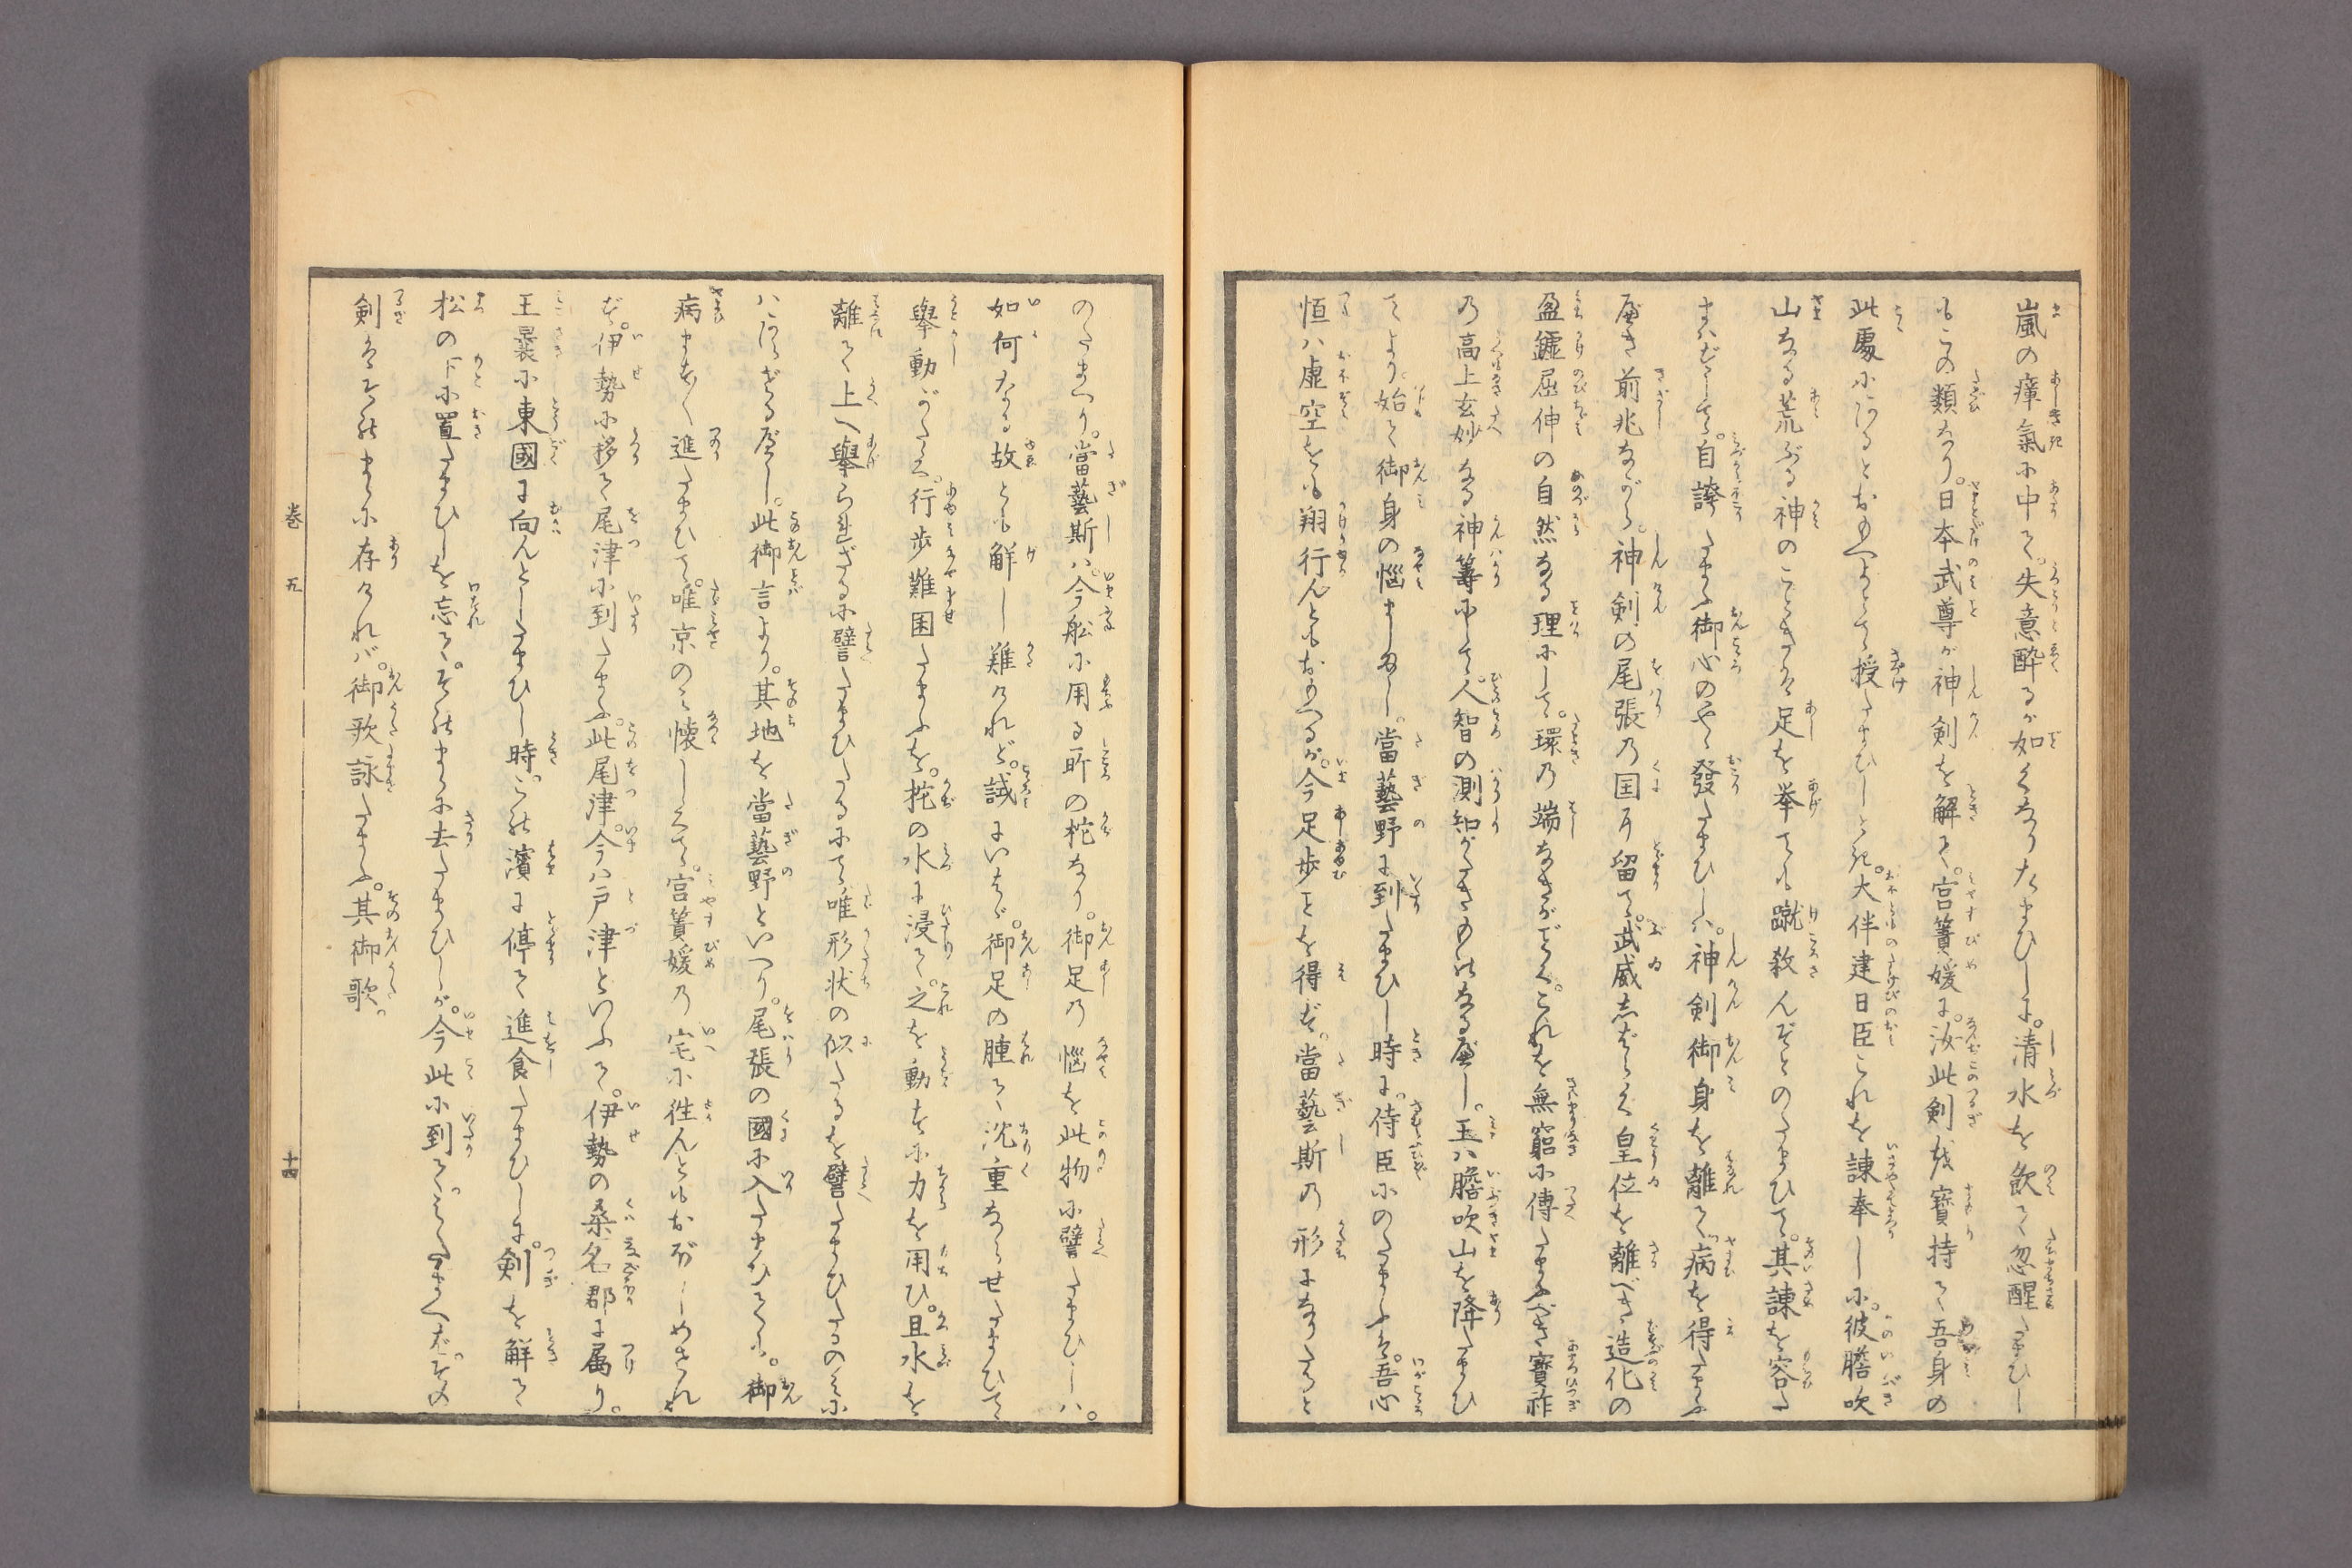 嵐の瘴氣に中て。失意酔るが如くなりたまひしに。清水を飲て忽醒たまひし
もこの類なり。日本武尊が神剣を解て。宮簀媛に。汝此剣を寶持て吾身の
此處にあるとおもへよとて授たまひしとぞ。大伴建日臣これを諌奉しに。彼膽吹
山なる荒ぶる神のごときは足を挙ても蹴殺んぞとのたまひて。其諌を容たま
まはざりし。自誇たまふ御心のやゝ發たまひしハ。神剣御身を離て。病を得たまふ
べき前兆ながら。神剣の尾張の国に留て。武威志ばらく皇位を離べき造化の
盈虚屈伸の自然なる理にして。環の端なきがごとく。これを無窮に傳たまふべき寶祚
の高上玄妙なる神籌にして。人智の測知がたきものなるべし。王ハ膽吹山を降たまひ
てより。始て御身の悩ましめし。當藝野に到たまひし時に。侍臣にのたまふは。吾心
恒ハ虚空をも翔行んともおもへるが。今足歩ことを得ず。當藝斯の形になりたりと
のたまへり。當藝斯ハ。今船に用る所の柁なり。御足の悩を此物に譬たまひしハ。
如何なる故とも解し難けれど。試にいはゞ。御足の腫て沈重ならせたまひて
擧動がたく。行歩難困たまふを。柁の水に浸て。之を動すに力を用ひ。且水を
離て上へ擧られざるに譬たまひたるにて。唯形状の似たるを譬たまひたるのみに
ハあらざるべし。此御言より。其地を當藝野といへり。尾張の國に入たまひてに。御
病ますます進たまひて。唯京のみ懐しくて。宮簀媛の宅に徃んともおぼしめされ
ず。伊勢に移て尾津に到たまふ。此尾津。今ハ戸津といふて。伊勢の桑名郡に属り。
王曩に東國に向んとしたまひし時。この濱に停て進食たまひしに。剣を解て
松の下に置たまひしを忘て。そのまゝに去たまひしが。今此に到て。みたまへば。その
剣はそのまゝに存けれバ。御歌詠たまふ。其御歌。
巻九
十四